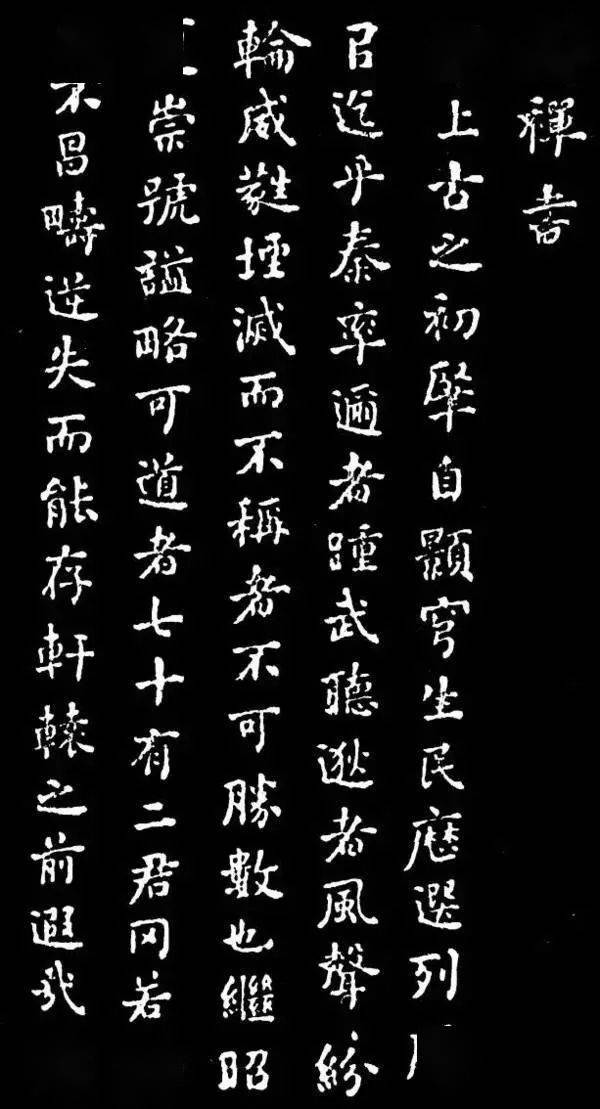 禪書
上古之初肇自顥穹生民歷選列
㠯迄乎秦率邇者踵武聽逖者風聲紛
輪威蕤堙滅而不稱者不可勝數也繼昭
崇號諡略可道者七十有二君罔若
不昌疇逆失而能存軒轅之前遐哉